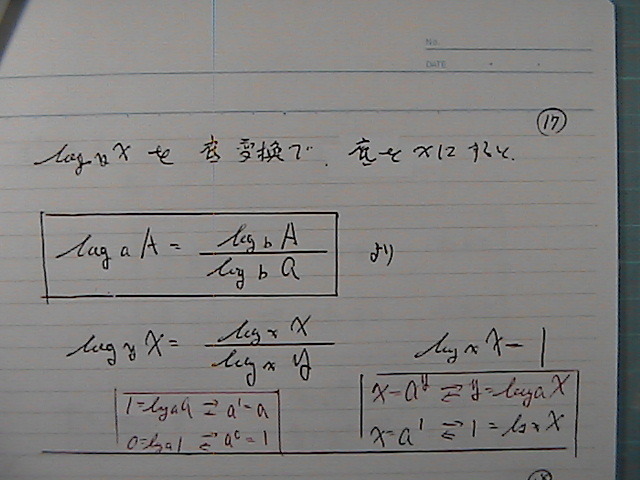 No.
DATE
⑰
log y X を 底変換で、底を xにすると、
log a A = log b A / log b a より
log y X = log x X / log x y
log x X = 1
1 = log a a ⇄ a¹ = a
0 = log a 1 ⇄ a⁰ = 1
x = a^y ⇄ y = log a X
x = a¹ ⇄ 1 = log x X